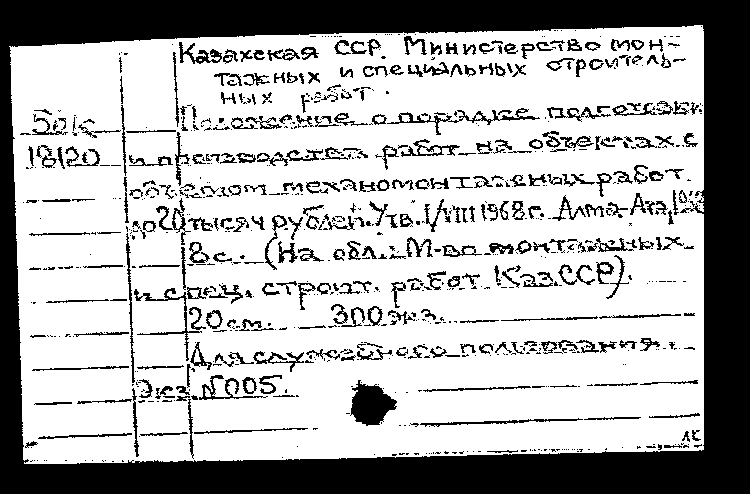 Казахская ССР. Министерство мон-
тажных и специальных строитель-
ных работ.
Положение о порядке подготовки
и производства работ на объектах с
объемом механомонтажных работ
до 20 тысяч рублей. Утв. 1/VIII 1968 г. Алма-Ата,
8 с. (На обл.: М-во монтажных
и спец. строит. работ Каз.ССР).
20 см. 300 экз.
Для служебного пользования.
Экз. №005.
18120